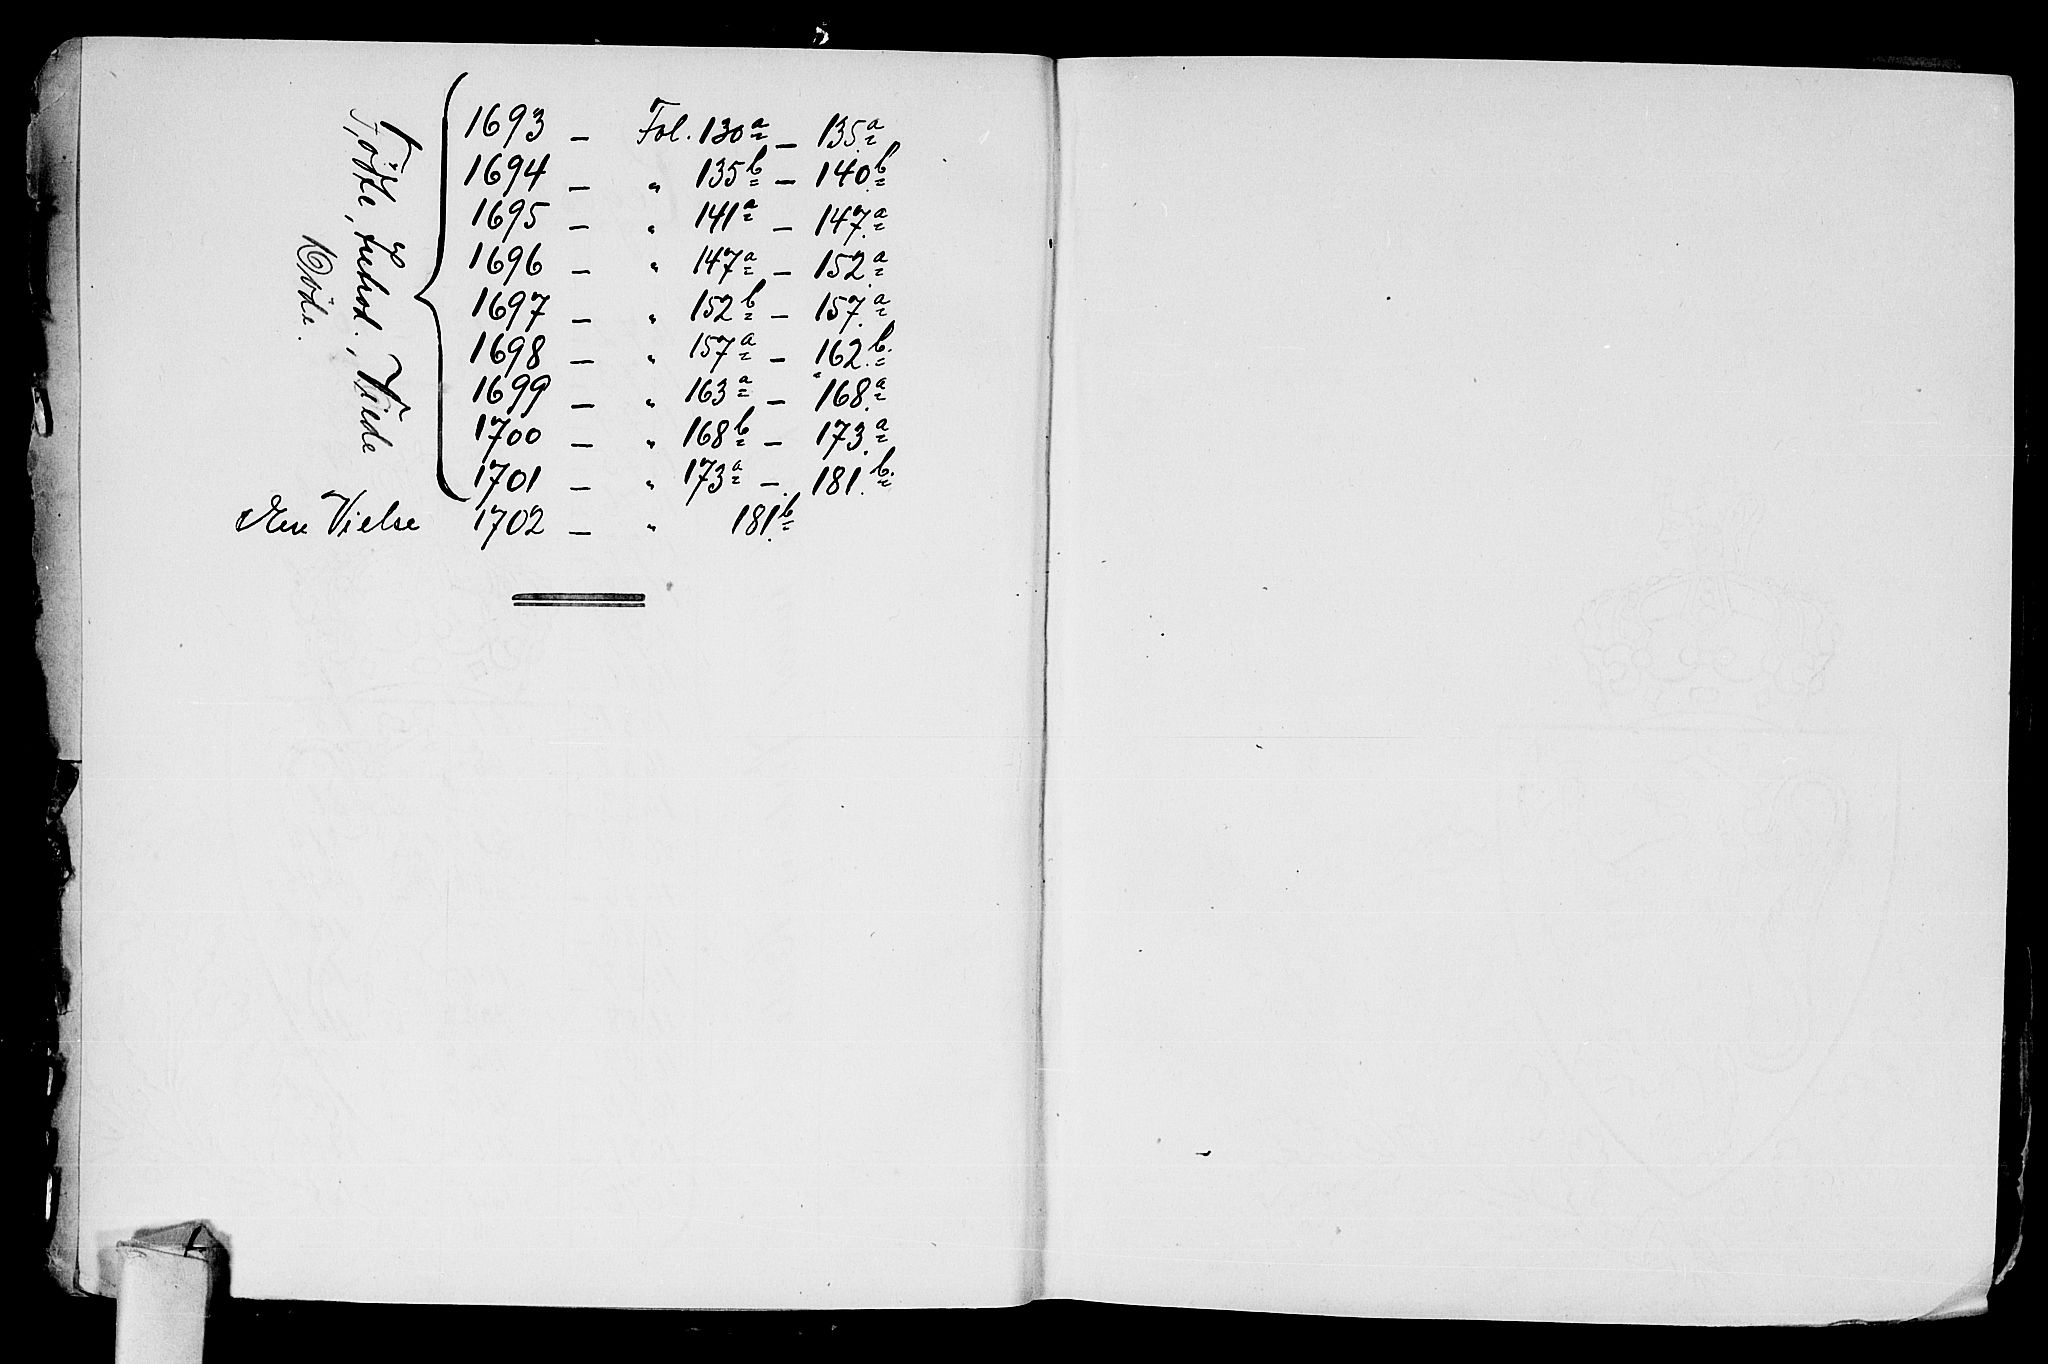 Fødte, Introd., Viede
Døde.
1693 — Fol. 130a — 135a
1694 — " 135b — 140b
1695 — " 141a — 147a
1696 — " 147a — 152a
1697 — " 152b — 157a
1698 — " 157a — 162b
1699 — " 163a — 168a
1700 — " 168b — 173a
1701 — " 173a — 181b
Vielse 1702 — " 181b